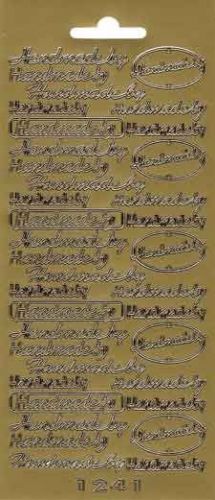 Handmade by
Handmade by
Handmade by
Handmade by Handmade by
Handmade by Handmade by
Handmade by
Handmade by
Handmade by
Handmade by Handmade by
Handmade by Handmade by
Handmade by
Handmade by
Handmade by
Handmade by Handmade by
Handmade by Handmade by
Handmade by
Handmade by
Handmade by
Handmade by Handmade by
Handmade by Handmade by
Handmade by
Handmade by
1241